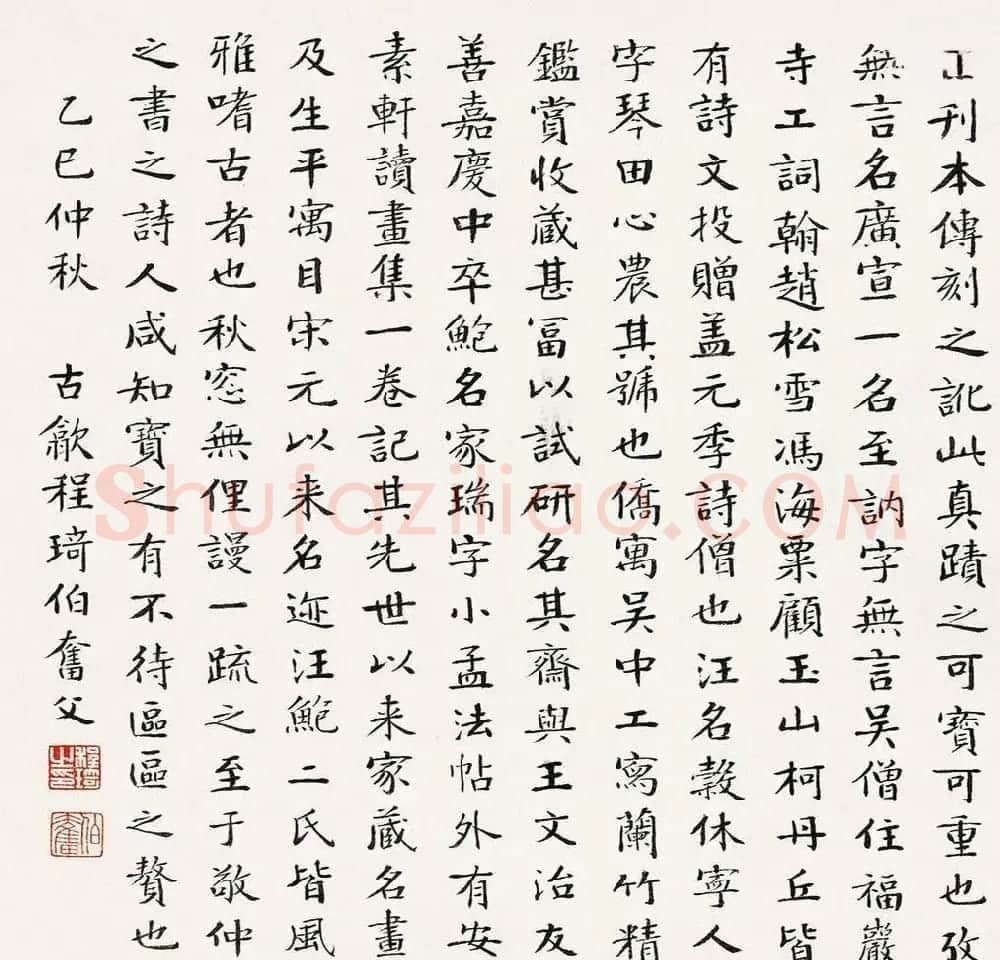 正刊本傳刻之訛此真蹟之可寶可重也攷
無言名廣宣一名至訥字無言吴僧住福巖
寺工詞翰趙松雪馮海粟顧玉山柯丹丘皆
有詩文投贈盖元季詩僧也汪名穀休寧人
字琴田心農其號也僑寓吴中工寫蘭竹精
鑑賞收蔵甚冨以試研名其齋與王文治友
善嘉慶中卒鮑名家瑞字小孟法帖外有安
素軒讀畫集一卷記其先世以来家蔵名畫
及生平寓目宋元以来名迹汪鮑二氏皆風
雅嗜古者也秋窓無俚謾一疏之至于敬仲
之書之詩人咸知寶之有不待區區之贅也
乙巳仲秋 古歙程琦伯奮父
程琦之印
伯奮
Shufaziliao.COM